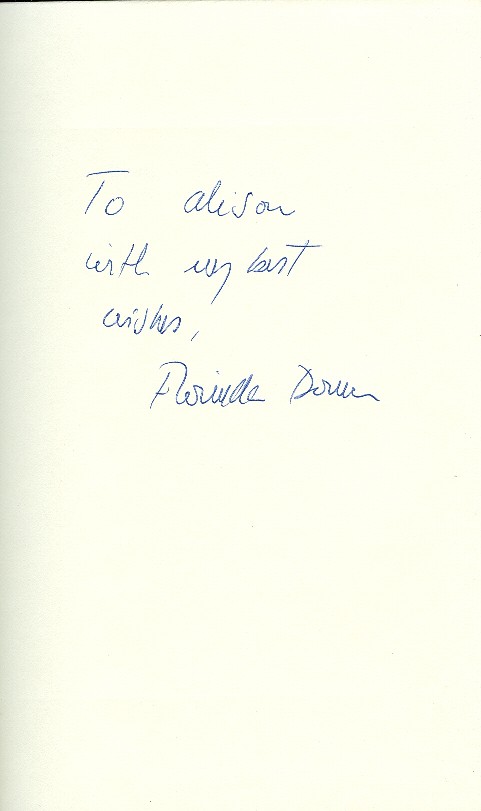 To alison
with my best
wishes,
Florinda Donner